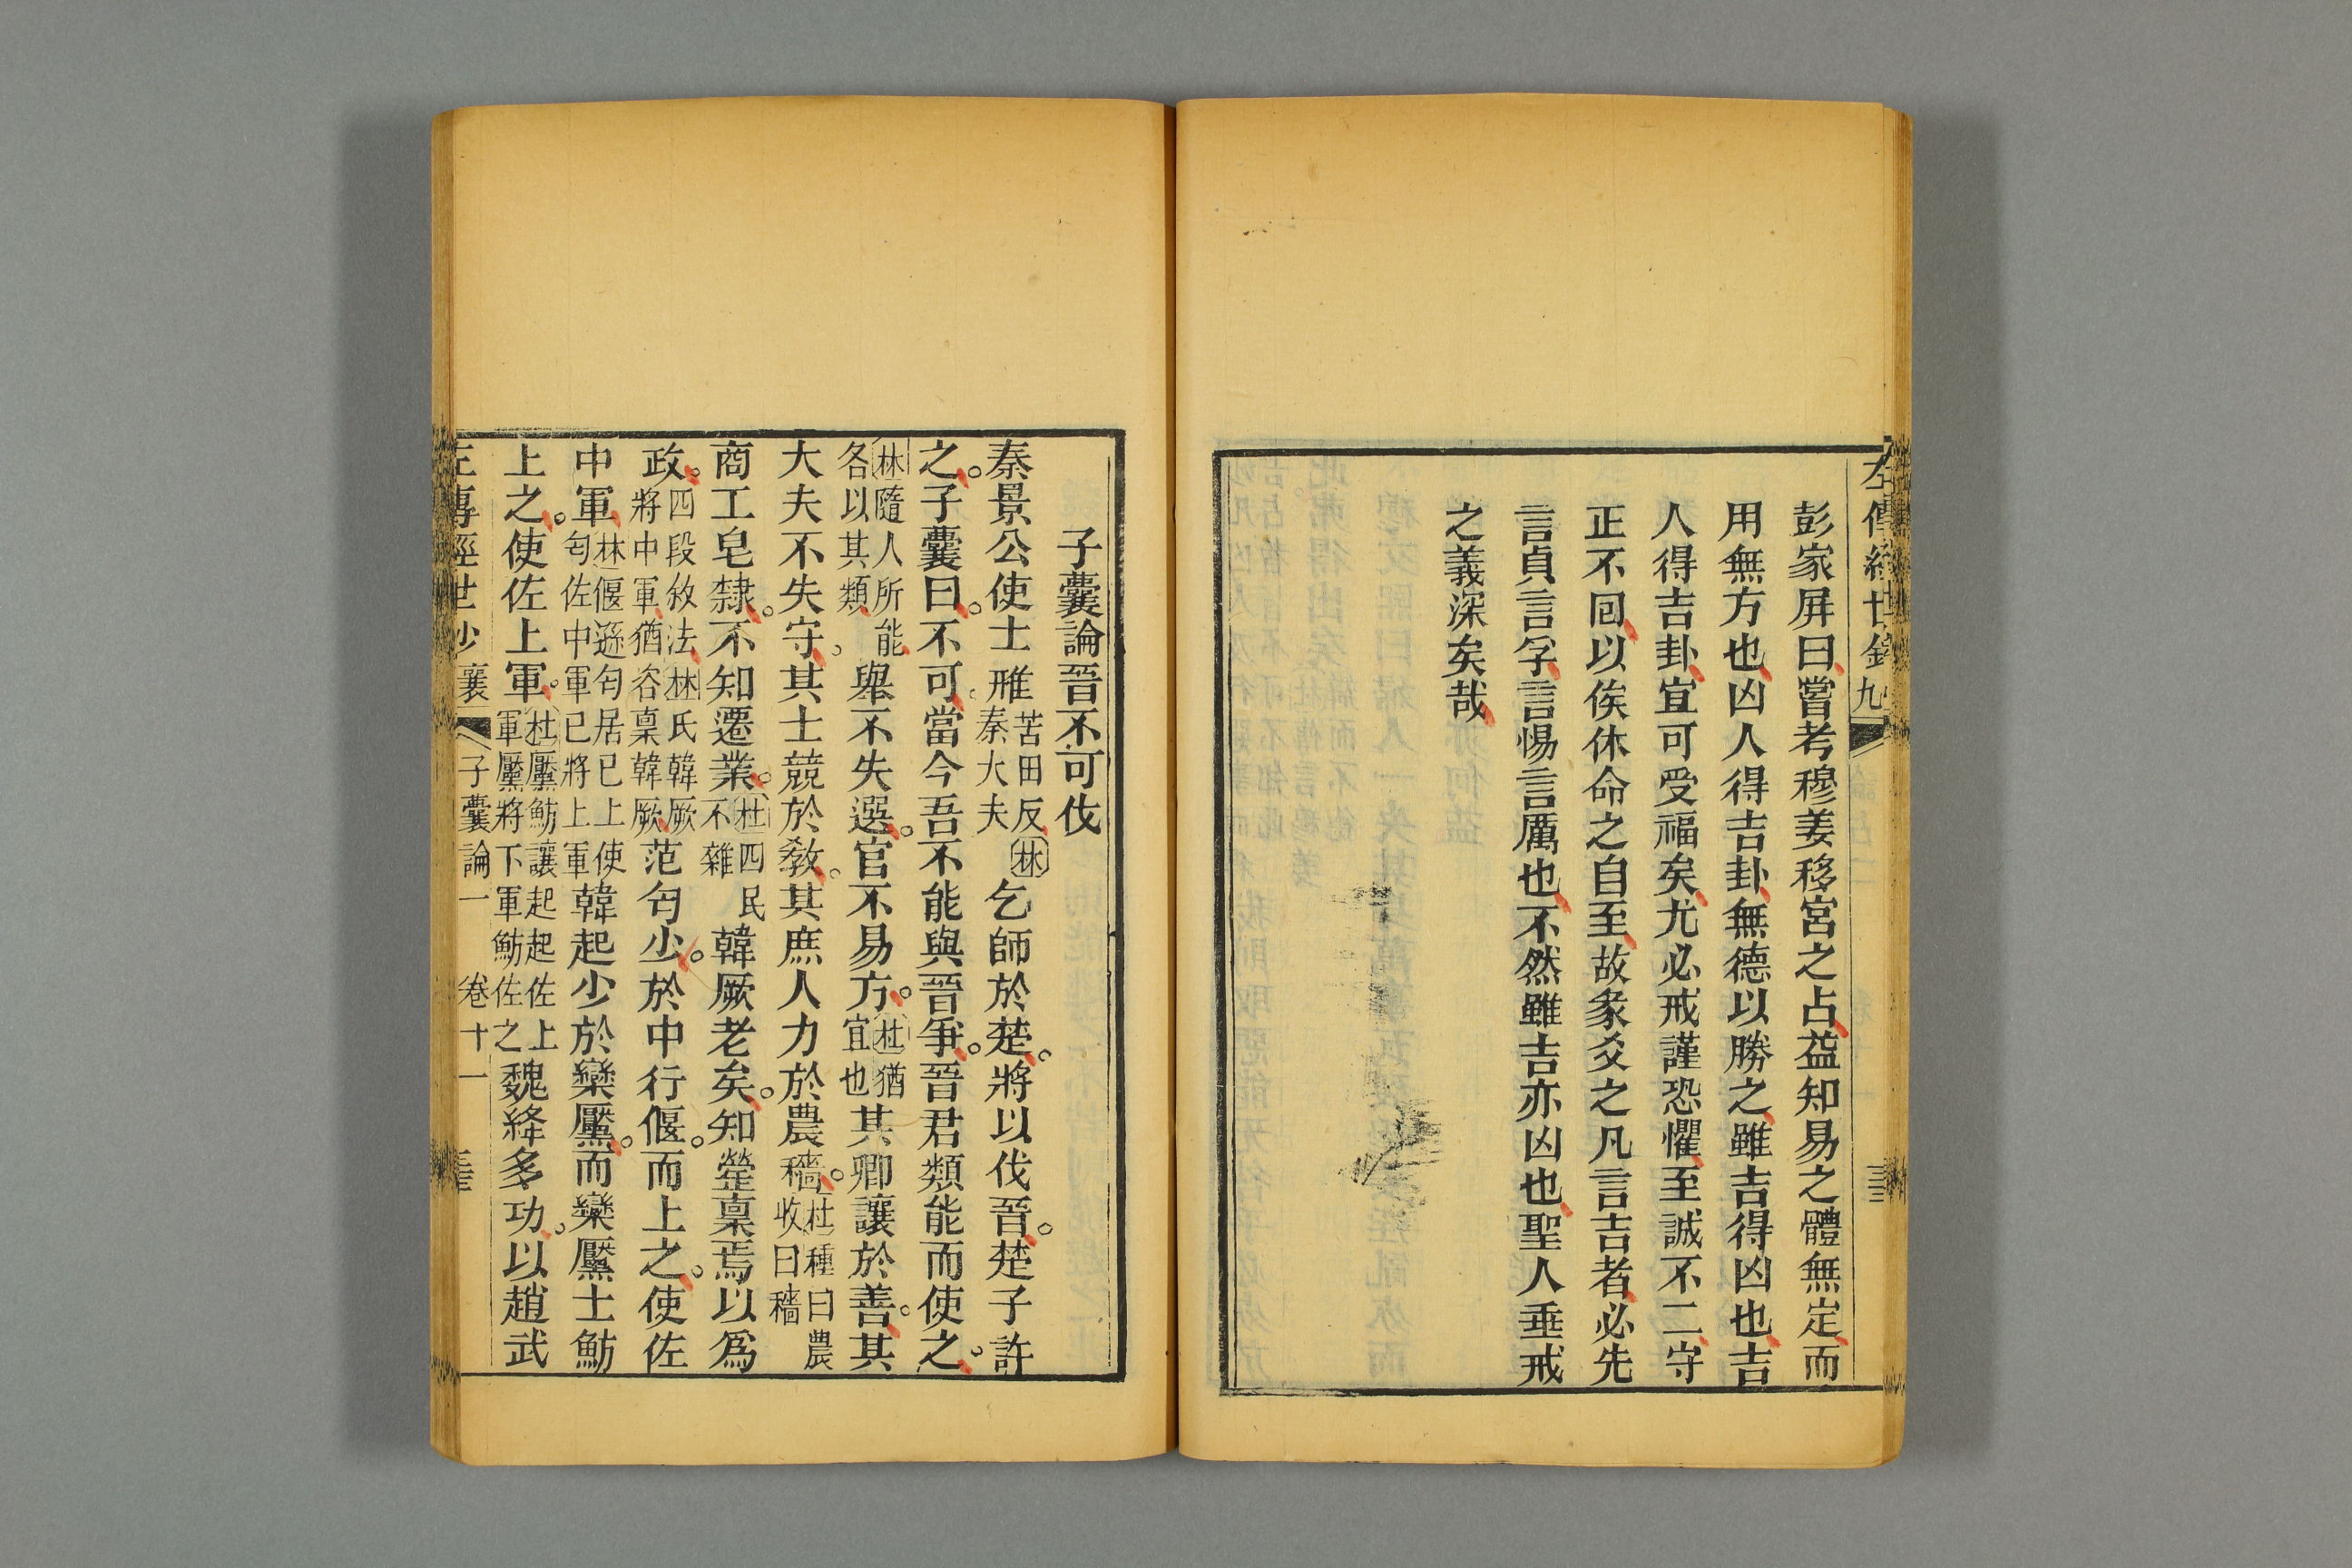 彭家屏曰嘗考穆姜移宮之占益知易之體無定而
用無方也凶人得吉卦無德以勝之雖吉得凶也吉
人得吉卦宜可受福矣尤必戒謹恐懼至誠不二守
正不回以俟休命之自至故彖爻之凡言吉者必先
言貞言孚言惕言厲也不然雖吉亦凶也聖人垂戒
之義深矣哉
子囊論晉不可伐
秦景公使士雃苦田反林秦大夫乞師於楚將以伐晉楚子許
之子囊曰不可當今吾不能與晉爭晉君類能而使之
林隨人所能各以其類舉不失選官不易方杜猶宜也其卿讓於善其
大夫不失守其士競於敎其庶人力於農穡杜種曰農收曰穡
商工皂隸不知遷業杜四民不雜韓厥老矣知罃稟焉以爲
政四段敘法林氏韓厥將中軍猶咨稟韓厥范匄少於中行偃而上之使佐
中軍林偃遜匄居已上使匄佐中軍已將上軍韓起少於欒黶而欒黶士魴
上之使佐上軍杜黶魴讓起起佐上軍黶將下軍魴佐之魏絳多功以趙武
左傳經世鈔 襄 子囊論一 卷十一